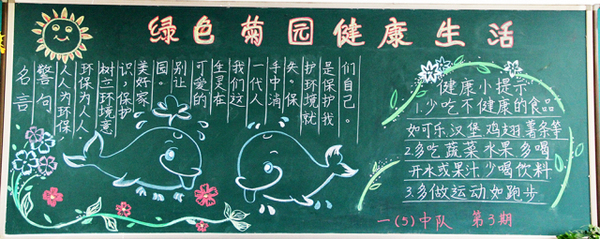 绿色菊园健康生活
名言
警句
人人为环保，
环保为人人
树立环境意
识，保护
美好家
园。
别让
可爱的
生灵在
我们这
一代人
手中消
失。保
护环境就
是保护我
们自己。
健康小提示
1.少吃不健康的食品
如可乐汉堡鸡翅薯条等
2.多吃蔬菜水果多喝
开水或果汁少喝饮料
3.多做运动如跑步
一(5)中队 第3期